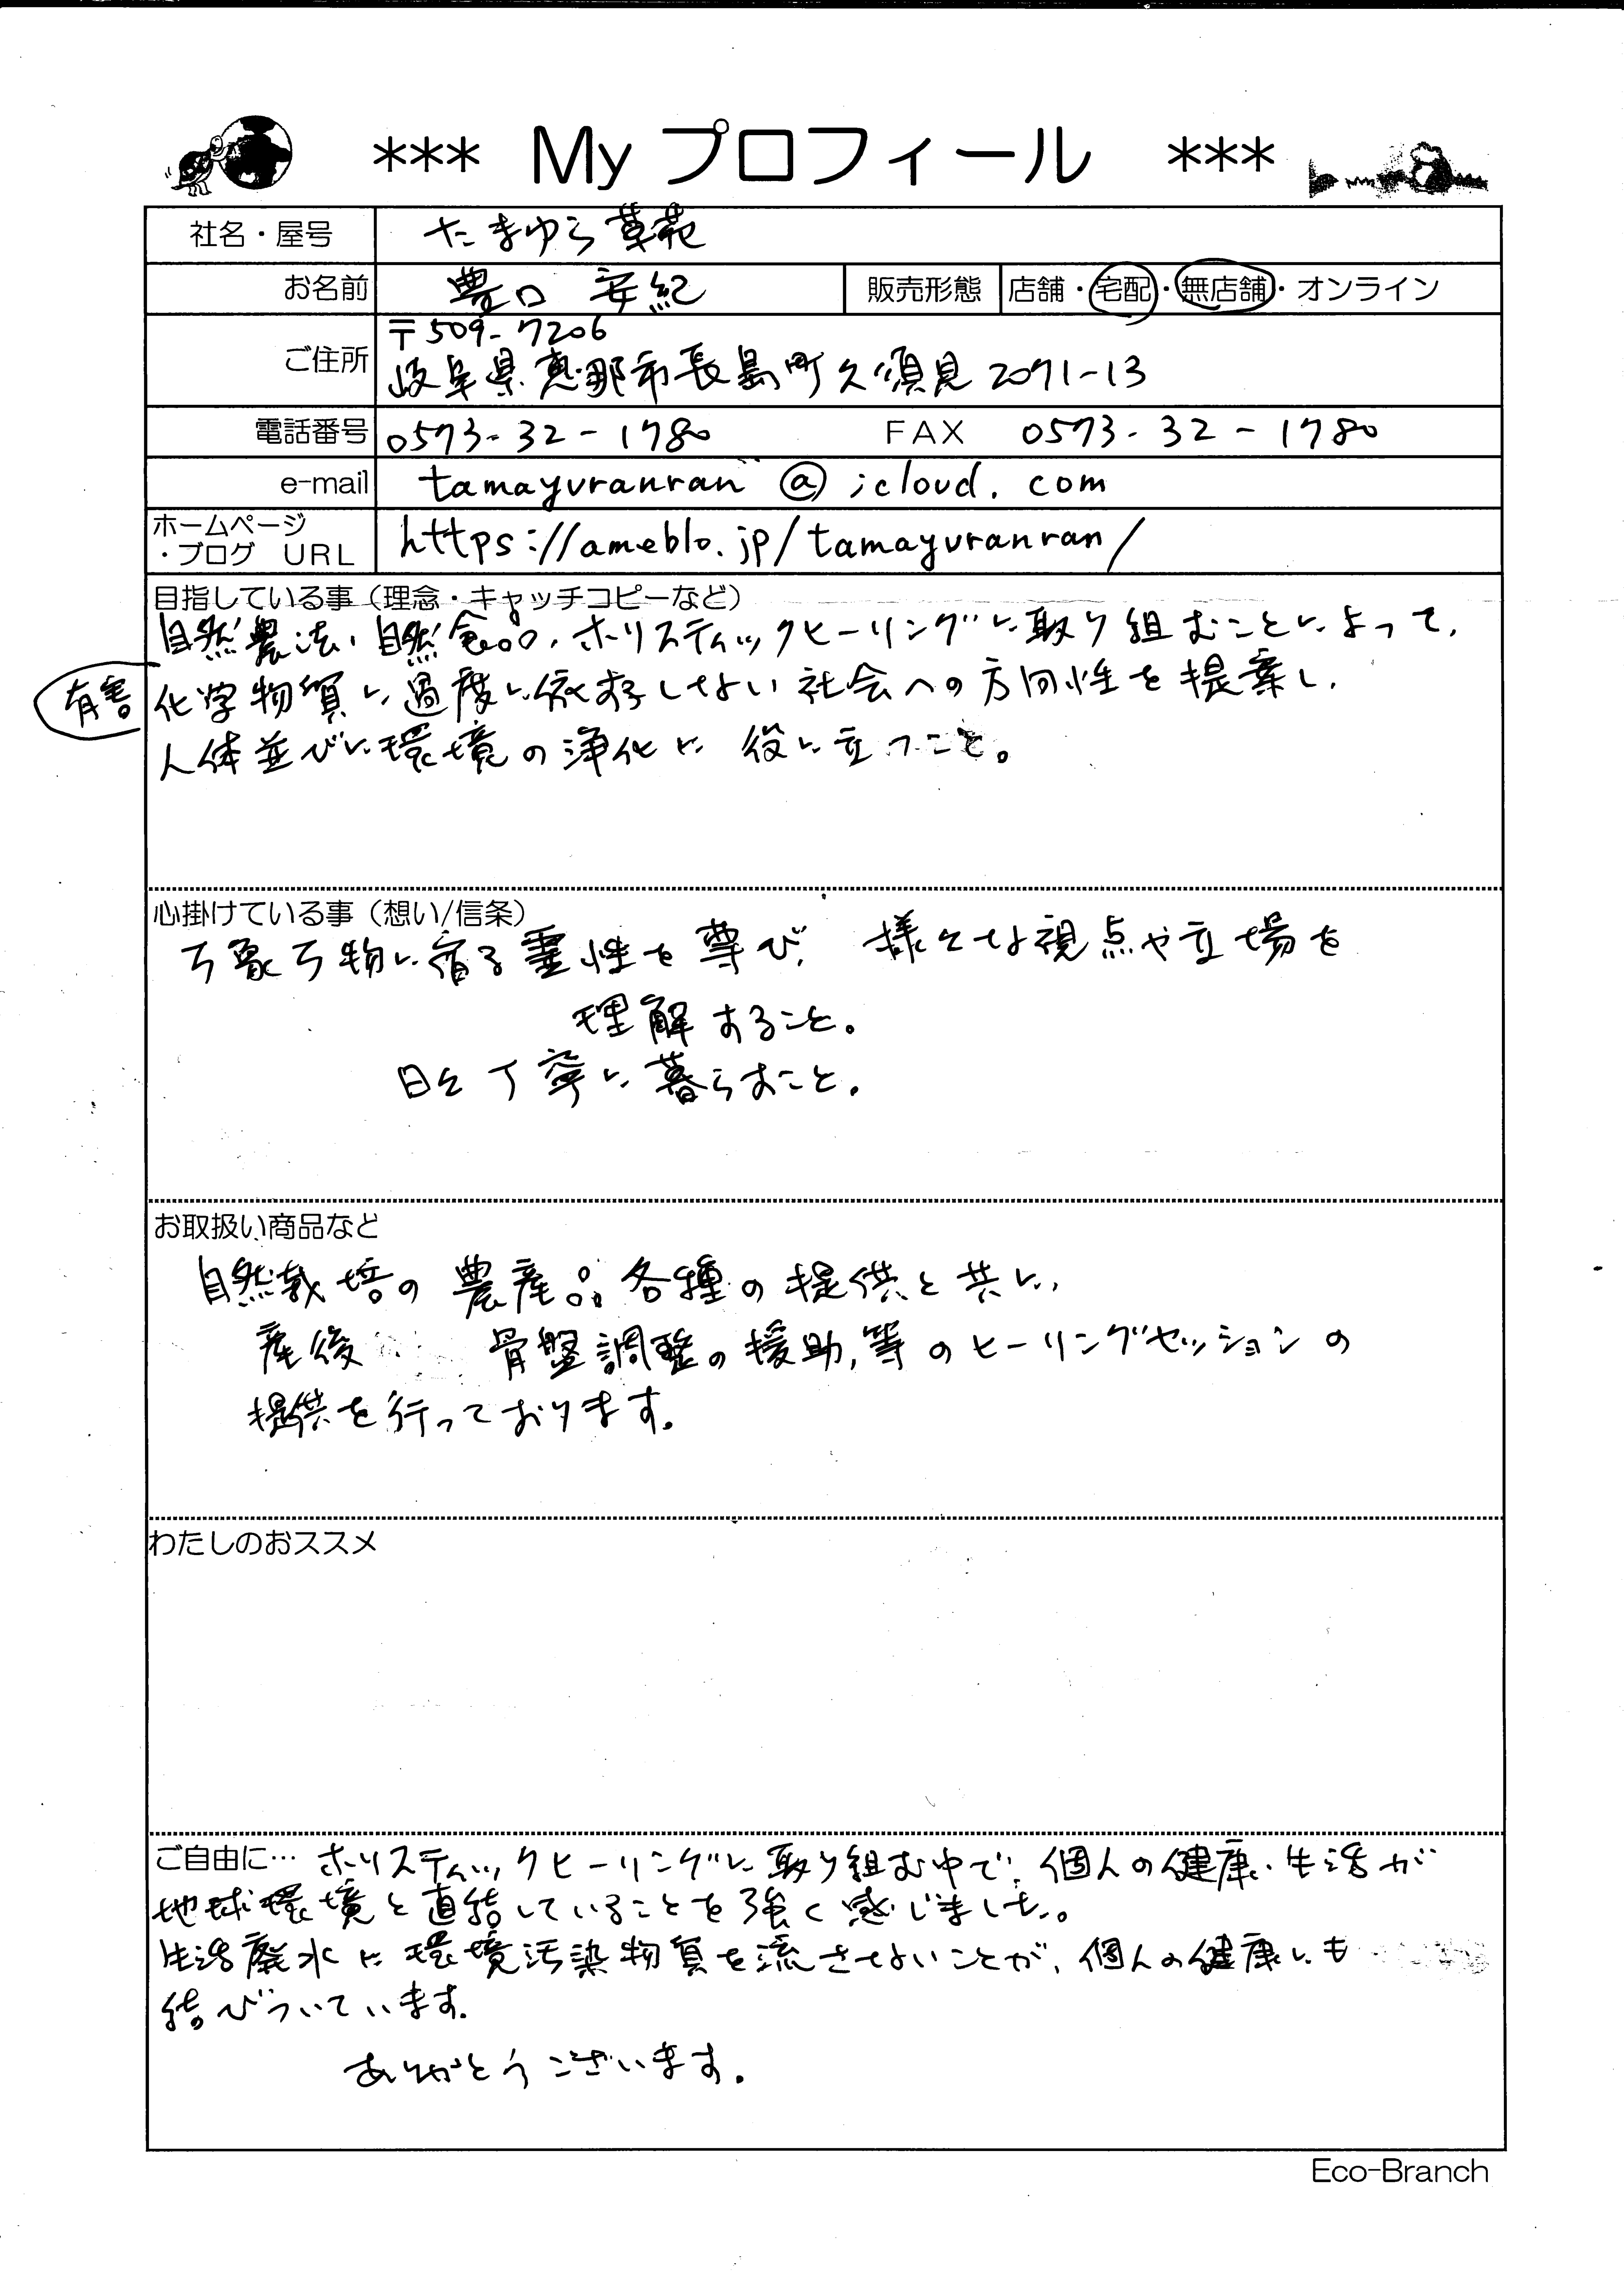 *** My プロフィール ***
社名・屋号 たまゆら草苑
お名前 豊口 安紀 販売形態 店舗・宅配・無店舗・オンライン
ご住所 〒509-7206
岐阜県恵那市長島町久須見2071-13
電話番号 0573-32-1780 FAX 0573-32-1780
e-mail tamayuranran@icloud.com
ホームページ
・ブログ URL https://ameblo.jp/tamayuranran/
目指している事（理念・キャッチコピーなど）
自然農法、自然食品、ホリスティックヒーリングに取り組むことによって、
有害 化学物質に過度に依存しない社会への方向性を提案し、
人体並びに環境の浄化に役に立つこと。
心掛けている事（想い/信条）
万象万物に宿る霊性を尊び、様々な視点や立場を
理解すること。
日々丁寧に暮らすこと。
お取扱い商品など
自然栽培の農産品各種の提供と共に、
産後 骨盤調整の援助、等のヒーリングセッションの
提供を行っております。
わたしのおススメ
ご自由に… ホリスティックヒーリングに取り組む中で、個人の健康、生活が
地球環境と直結していることを強く感じました。
生活廃水に環境汚染物質を流させないことが、個人の健康にも
結びついています。
ありがとうございます。
Eco-Branch